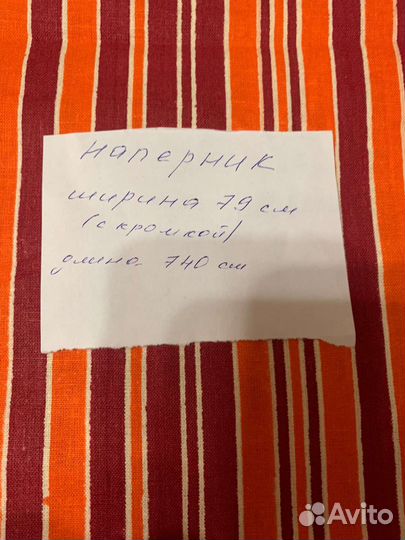 наперник
ширина 79 см
(с кромкой)
длина 740 см
Avito